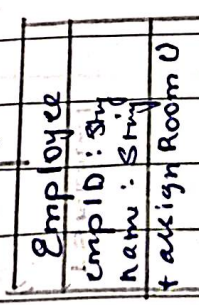 Employee
empID : Str
name : String
+ assign Room ()